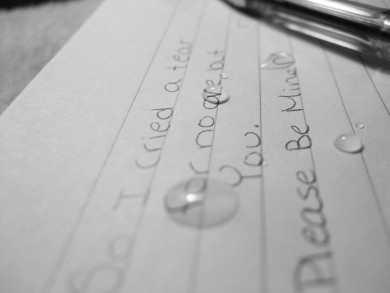 So I cried a tear
for no one but
You.
Please Be Mine